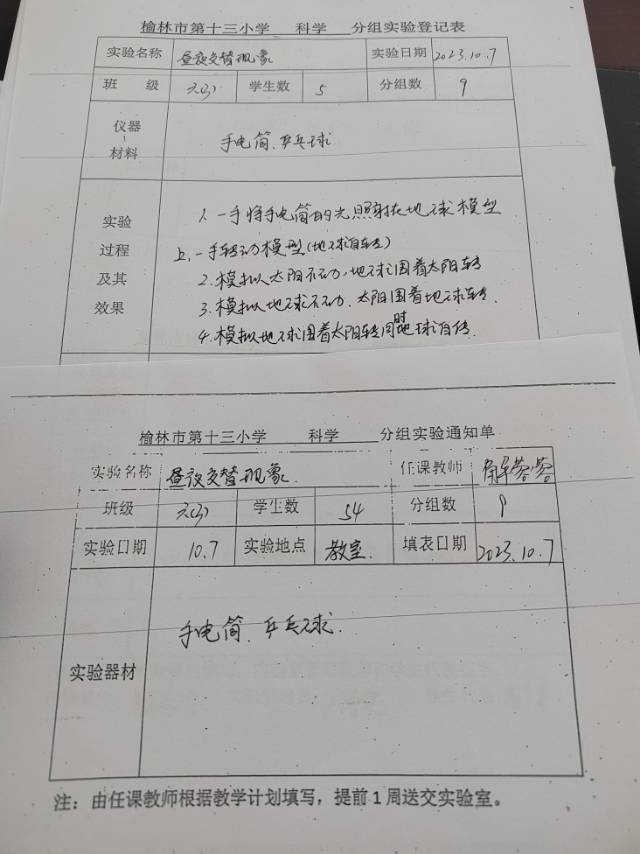 榆林市第十三小学 科学 分组实验登记表
实验名称 昼夜交替现象 实验日期 2023.10.7
班 级 六(3) 学生数 5 分组数 9
仪器、材料 手电筒、乒乓球
实验
过程
及其
效果
1. 一手将手电筒的光照射在地球模型
上,一手转动模型(地球自转)
2.模拟太阳不动,地球围着太阳转
3.模拟地球不动,太阳围着地球转.
4.模拟地球围着太阳转同时地球自传.
榆林市第十三小学 科学 分组实验通知单
实验名称 昼夜交替现象. 任课教师
班级 六(3) 学生数 54 分组数 9
实验日期 10.7 实验地点 教室. 填表日期 2023.10.7
实验器材 手电筒、乒乓球.
注:由任课教师根据教学计划填写,提前1周送交实验室。